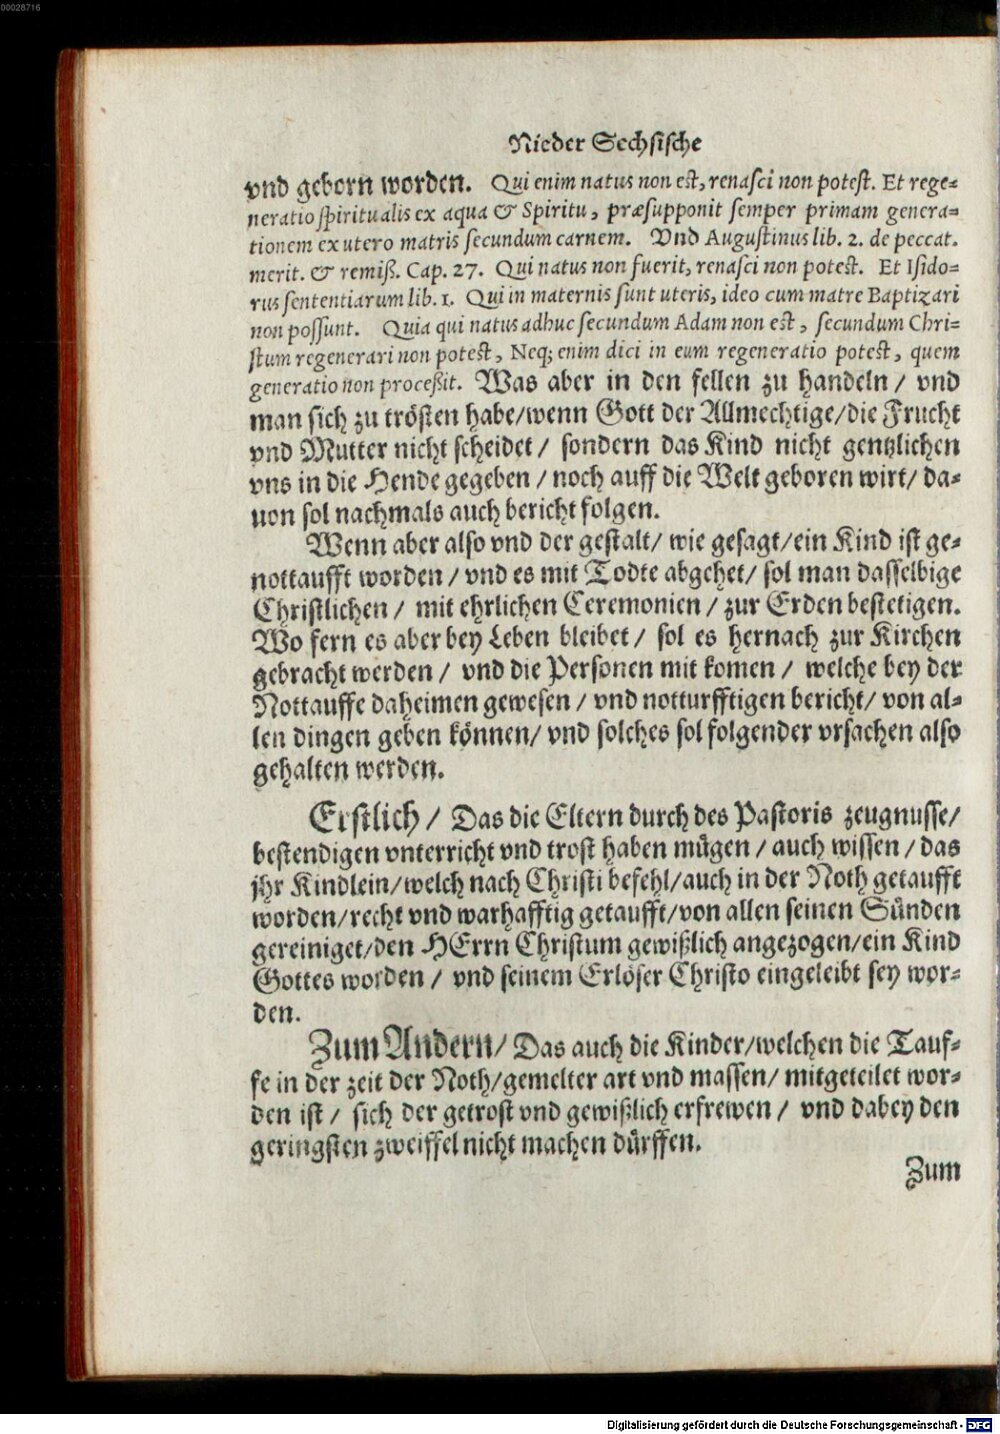 00028716
Nieder Sechsische
vnd geborn worden. Qui enim natus non est, renasci non potest. Et rege-
neratio spiritualis ex aqua & Spiritu, præsupponit semper primam genera-
tionem ex utero matris secundum carnem. Vnd Augustinus lib. 2. de peccat.
merit. & remiß. Cap. 27. Qui natus non fuerit, renasci non potest. Et Isido-
rus sententiarum lib. 1. Qui in maternis sunt uteris, ideo cum matre Baptizari
non possunt. Quia qui natus adhuc secundum Adam non est, secundum Chri-
stum regenerari non potest, Neq; enim dici in eum regeneratio potest, quem
generatio non proceßit. Was aber in den fellen zu handeln / vnd
man sich zu trösten habe/wenn Gott der Allmechtige/die Frucht
vnd Mutter nicht scheidet / sondern das Kind nicht gentzlichen
vns in die Hende gegeben / noch auff die Welt geboren wirt/ da-
uon sol nachmals auch bericht folgen.
Wenn aber also vnd der gestalt/ wie gesagt/ein Kind ist ge-
nottaufft worden / vnd es mit Todte abgehet/ sol man dasselbige
Christlichen / mit ehrlichen Ceremonien / zur Erden bestetigen.
Wo fern es aber bey Leben bleibet / sol es hernach zur Kirchen
gebracht werden / vnd die Personen mit komen / welche bey der
Nottauffe daheimen gewesen / vnd notturfftigen bericht/ von al-
len dingen geben können/ vnd solches sol folgender vrsachen also
gehalten werden.
Erstlich / Das die Eltern durch des Pastoris zeugnusse/
bestendigen vnterricht vnd trost haben mügen / auch wissen / das
jhr Kindlein/welch nach Christi befehl/auch in der Noth getaufft
worden/recht vnd warhafftig getaufft/von allen seinen Sünden
gereiniget/den HErrn Christum gewißlich angezogen/ein Kind
Gottes worden / vnd seinem Erlöser Christo eingeleibt sey wor-
den.
Zum Andern/ Das auch die Kinder/welchen die Tauf-
fe in der zeit der Noth/gemelter art vnd massen/ mitgeteilet wor-
den ist / sich der getrost vnd gewißlich erfrewen / vnd dabey den
geringsten zweiffel nicht machen dürffen.
Zum
Digitalisierung gefördert durch die Deutsche Forschungsgemeinschaft - DFG